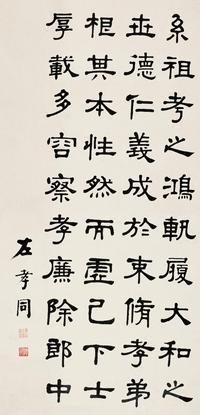 系祖考之鴻軌履大和之
世德仁義成於束脩孝弟
根其本性然而虛己下士
厚載多容察孝廉除郎中
左孝同